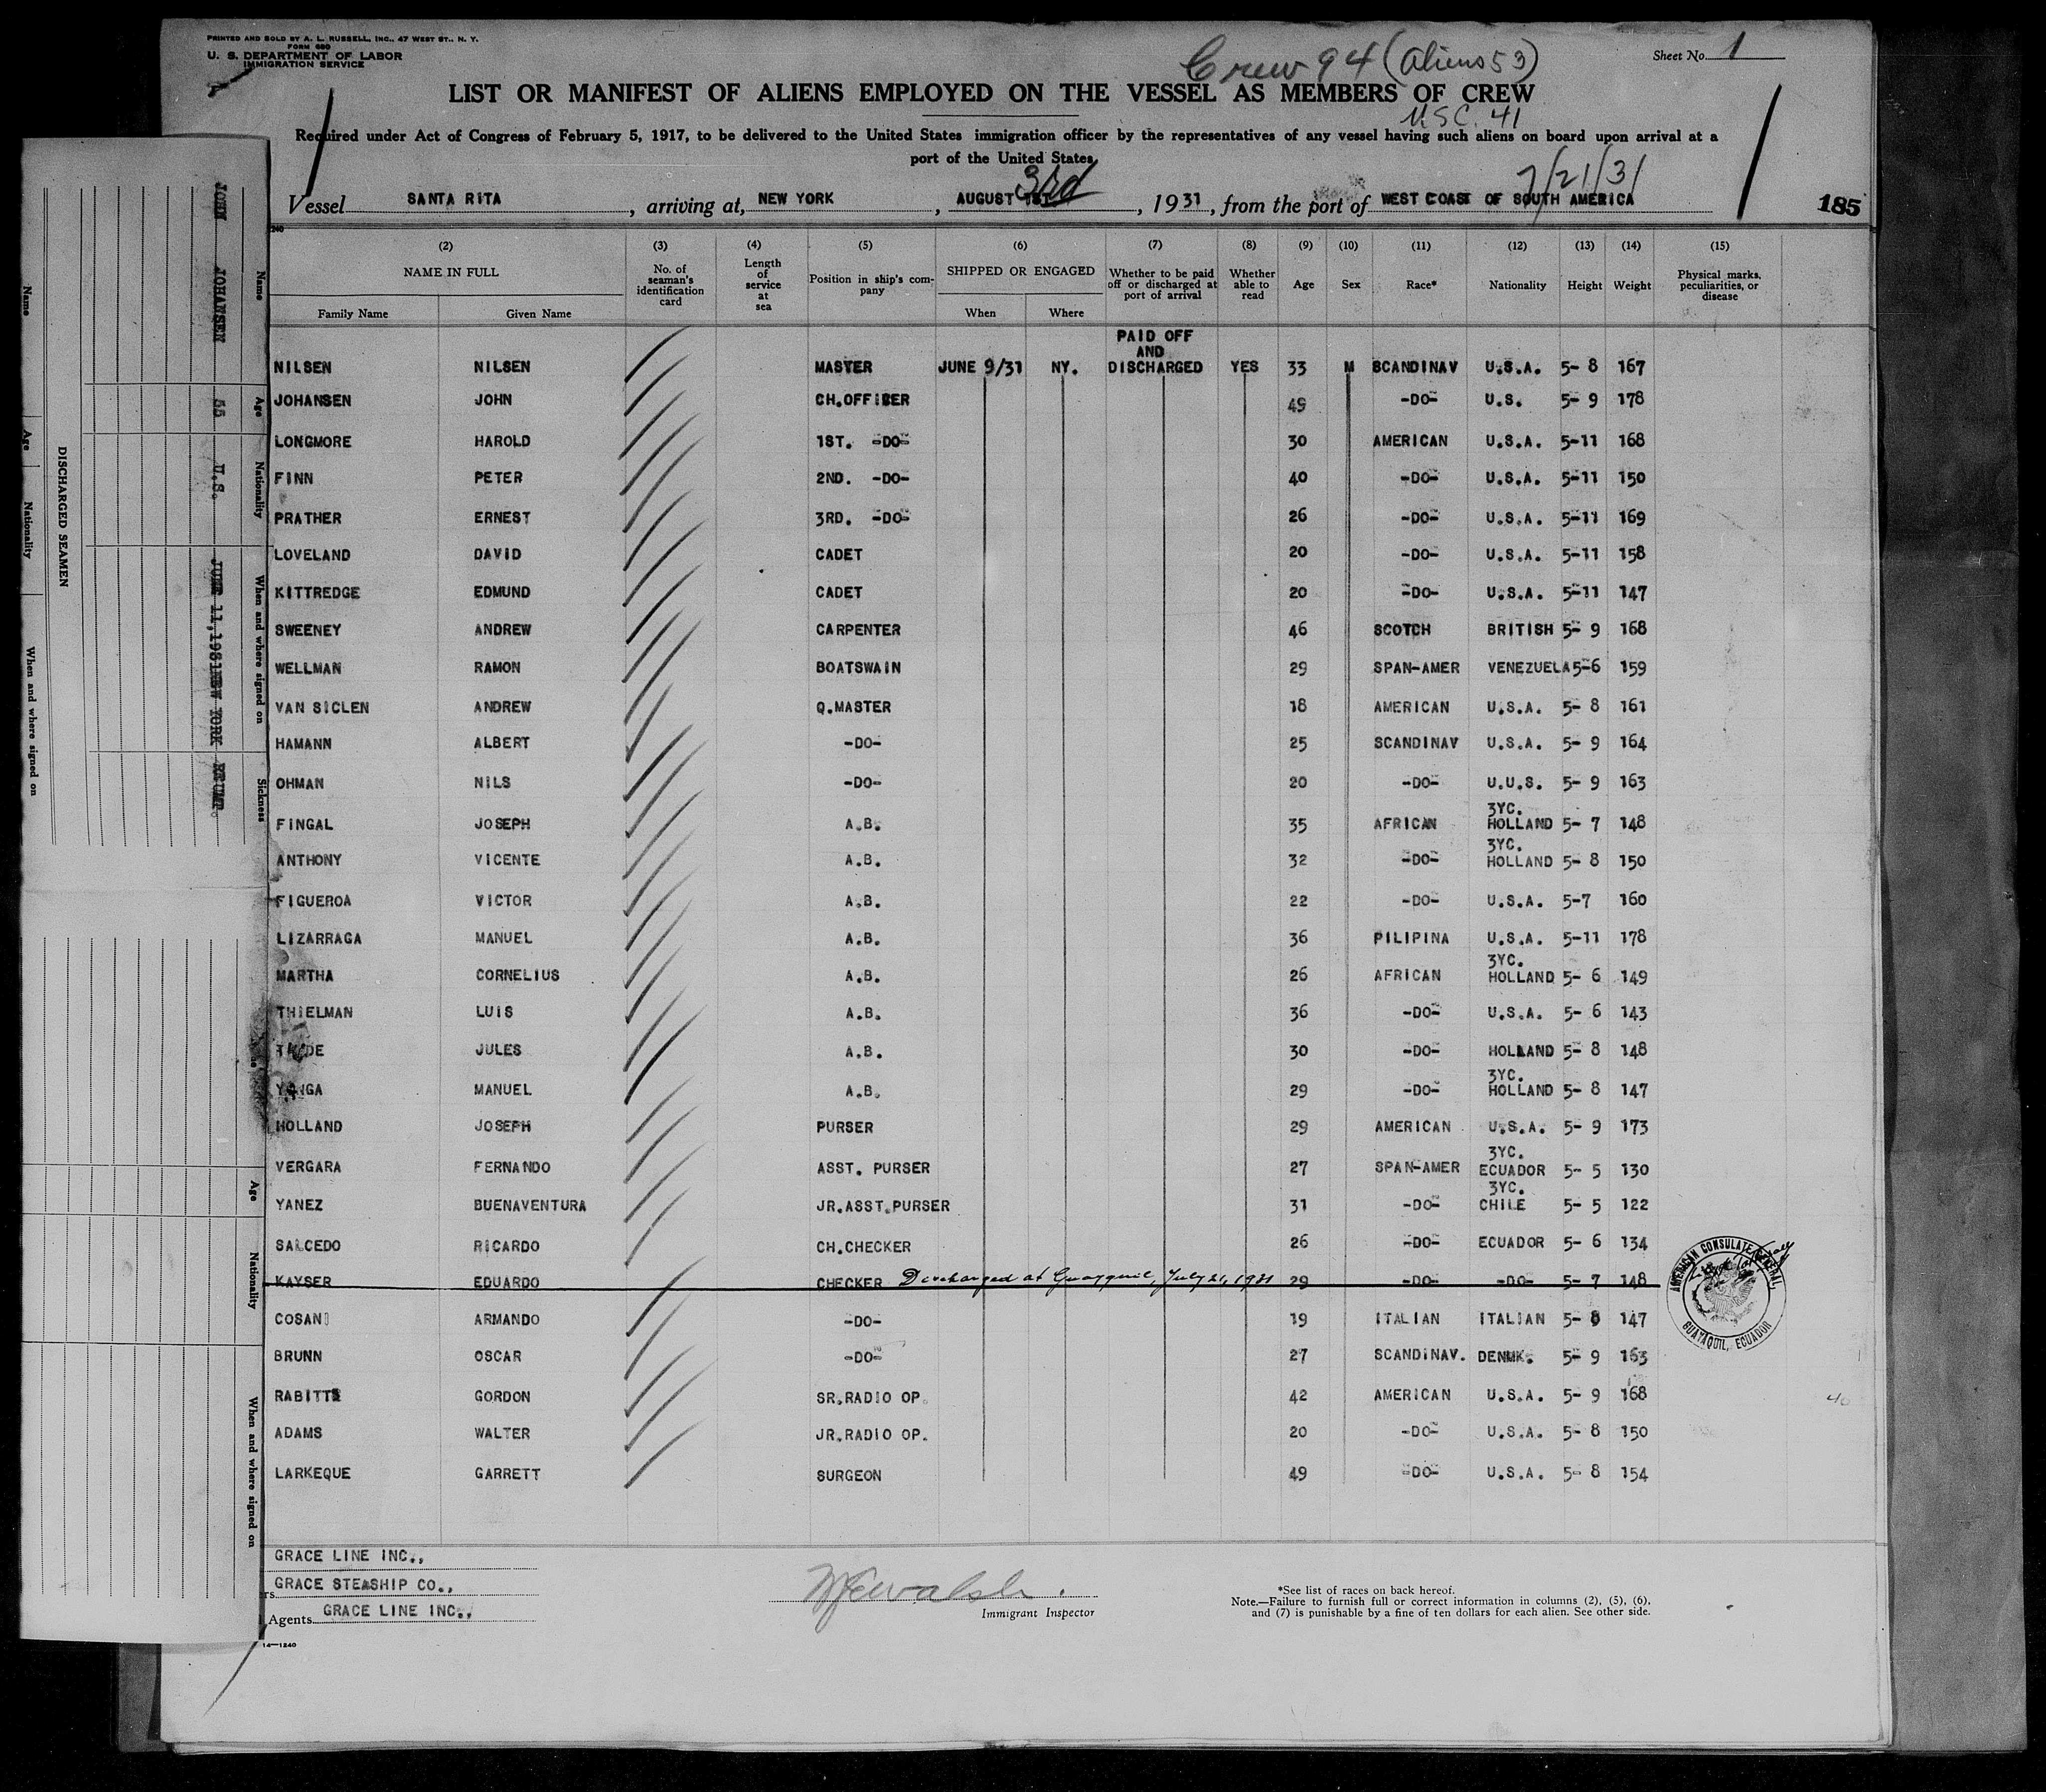 PRINTED AND SOLD BY A. L. RUSSELL, INC., 47 WEST ST., N. Y.
FORM 680
U. S. DEPARTMENT OF LABOR
IMMIGRATION SERVICE
Crew 94 (Aliens 53)
Sheet No. 1
LIST OR MANIFEST OF ALIENS EMPLOYED ON THE VESSEL AS MEMBERS OF CREW
USC. 41
Required under Act of Congress of February 5, 1917, to be delivered to the United States immigration officer by the representatives of any vessel having such aliens on board upon arrival at a
port of the United States
7/21/31
Vessel SANTA RITA, arriving at, NEW YORK, AUGUST 3rd, 1931, from the port of WEST COAST OF SOUTH AMERICA
185
240
(2) (3) (4) (5) (6) (7) (8) (9) (10) (11) (12) (13) (14) (15)
NAME IN FULL No. of seaman's identification card Length of service at sea Position in ship's company SHIPPED OR ENGAGED Whether to be paid off or discharged at port of arrival Whether able to read Age Sex Race* Nationality Height Weight Physical marks, peculiarities, or disease
Family Name Given Name When Where
PAID OFF
AND
NILSEN NILSEN MASTER JUNE 9/31 NY. DISCHARGED YES 33 M SCANDINAV U.S.A. 5- 8 167
JOHANSEN JOHN CH.OFFICER 49 -DO- U.S. 5- 9 178
LONGMORE HAROLD 1ST. -DO- 30 AMERICAN U.S.A. 5-11 168
FINN PETER 2ND. -DO- 40 -DO- U.S.A. 5-11 150
PRATHER ERNEST 3RD. -DO- 26 -DO- U.S.A. 5-11 169
LOVELAND DAVID CADET 20 -DO- U.S.A. 5-11 158
KITTREDGE EDMUND CADET 20 -DO- U.S.A. 5-11 147
SWEENEY ANDREW CARPENTER 46 SCOTCH BRITISH 5- 9 168
WELLMAN RAMON BOATSWAIN 29 SPAN-AMER VENEZUELA 5-6 159
VAN SICLEN ANDREW Q.MASTER 18 AMERICAN U.S.A. 5- 8 161
HAMANN ALBERT -DO- 25 SCANDINAV U.S.A. 5- 9 164
OHMAN NILS -DO- 20 -DO- U.U.S. 5- 9 163
3YC.
FINGAL JOSEPH A.B. 35 AFRICAN HOLLAND 5- 7 148
3YC.
ANTHONY VICENTE A.B. 32 -DO- HOLLAND 5- 8 150
FIGUEROA VICTOR A.B. 22 -DO- U.S.A. 5-7 160
LIZARRAGA MANUEL A.B. 36 PILIPINA U.S.A. 5-11 178
3YC.
MARTHA CORNELIUS A.B. 26 AFRICAN HOLLAND 5- 6 149
THIELMAN LUIS A.B. 36 -DO- U.S.A. 5- 6 143
JULES A.B. 30 -DO- HOLLAND 5- 8 148
3YC.
MANUEL A.B. 29 -DO- HOLLAND 5- 8 147
HOLLAND JOSEPH PURSER 29 AMERICAN U.S.A. 5- 9 173
3YC.
VERGARA FERNANDO ASST. PURSER 27 SPAN-AMER ECUADOR 5- 5 130
3YC.
YANEZ BUENAVENTURA JR.ASST.PURSER 31 -DO- CHILE 5- 5 122
SALCEDO RICARDO CH.CHECKER 26 -DO- ECUADOR 5- 6 134
KAYSER EDUARDO CHECKER Discharged at Guayaquil, July 21, 1931 29 -DO- -DO- 5- 7 148
AMERICAN CONSULATE GENERAL, GUAYAQUIL, ECUADOR
COSANI ARMANDO -DO- 19 ITALIAN ITALIAN 5- 8 147
BRUNN OSCAR -DO- 27 SCANDINAV. DENMK. 5- 9 163
RABITTE GORDON SR.RADIO OP. 42 AMERICAN U.S.A. 5- 9 168
40
ADAMS WALTER JR.RADIO OP. 20 -DO- U.S.A. 5- 8 150
LARKEQUE GARRETT SURGEON 49 -DO- U.S.A. 5- 8 154
GRACE LINE INC.,
rs GRACE STEASHIP CO.,
Agents GRACE LINE INC.,
Immigrant Inspector
*See list of races on back hereof.
Note.—Failure to furnish full or correct information in columns (2), (5), (6),
and (7) is punishable by a fine of ten dollars for each alien. See other side.
14—1240
DISCHARGED SEAMEN
Name Age Nationality When and where signed on Sickness
JOHN JOHANSEN 55 U.S. JUNE 11,1931 NEW YORK
Name Age Nationality When and where signed on
Age Nationality When and where signed on